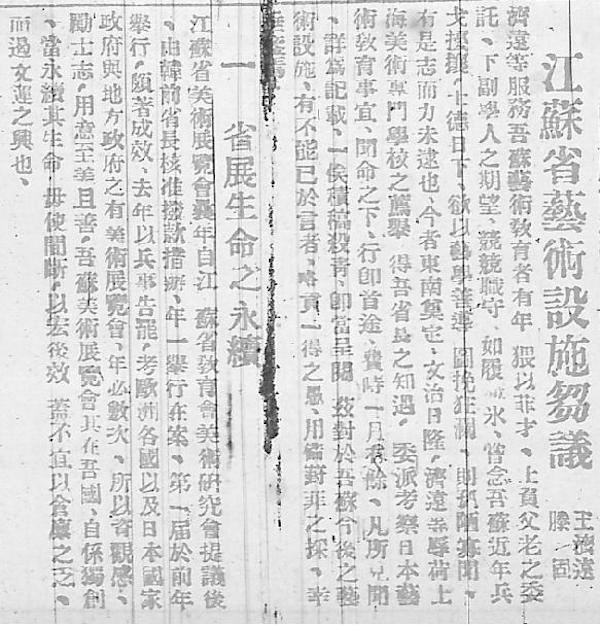 江蘇省藝術設施芻議
王濟遠
滕固
濟遠等服務吾蘇藝術教育者有年、猥以菲才、上負父老之委
託、下副學人之期望、兢兢職守、如履冰、嘗念吾蘇近年兵
戈擾攘、上德日下、欲以藝學善導、圖挽狂瀾、則孤陋寡聞、
有是志而力未逮也、今者東南奠定、文治日隆、濟遠等辱荷上
海美術專門學校之薦舉、得吾省長之知遇、委派考察日本藝
術敎育事宜、聞命之下、行卽首途、費時一月有餘、凡所見聞
、詳爲記載、一俟積稿殺靑、卽當呈閱、茲對於吾蘇今後之藝
術設施、有不能已於言者、略貢一得之愚、用備葑菲之採、幸
垂鑒焉、
一 省展生命之永續
江蘇省美術展覽會曩年自江蘇省敎育會美術研究會提議後
、由韓前省長核准撥款措辦、年一舉行在案、第一屆於前年
舉行、頗著成效、去年以兵事告罷、考歐洲各國以及日本國家
政府與地方政府之有美術展覽會、年必數次、所以資觀感、
勵士志、用意至美且善、吾蘇美術展覽會其在吾國、自係獨創
、當永續其生命、毋使間斷、以去後效、蓋不宜以倉廩之乏、
而遏文運之興也、